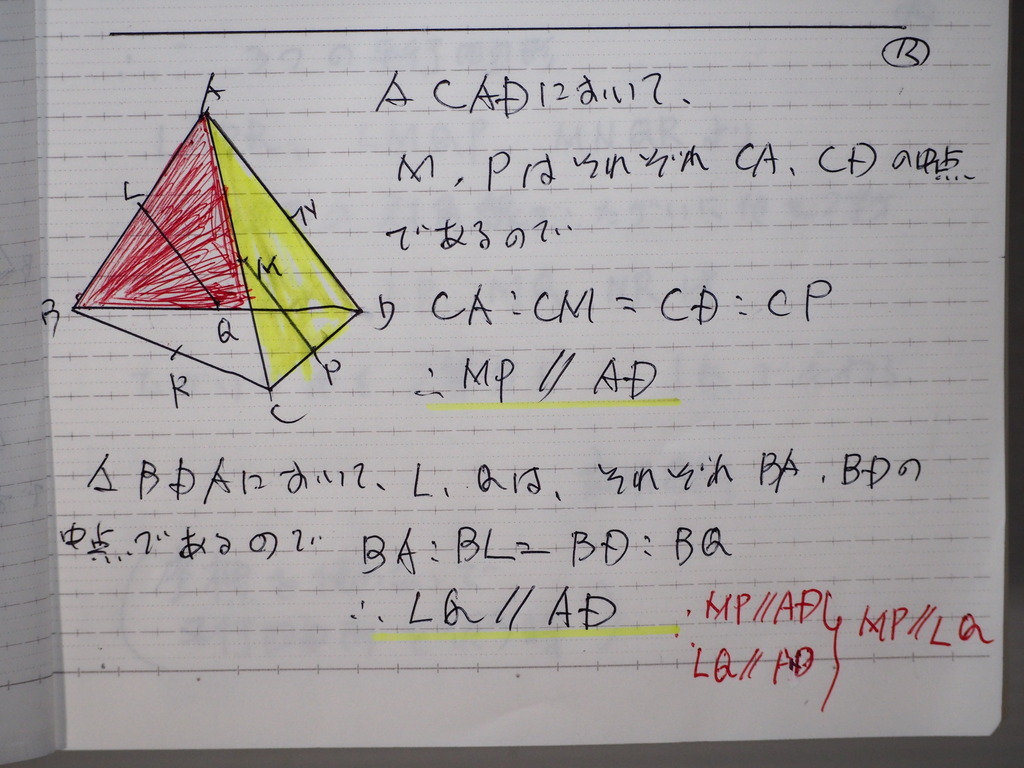 B
△CADにおいて、
M、PはそれぞれCA、CDの中点
であるので
CA:CM=CD:CP
∴MP//AD
A
L
N
M
B
Q
D
P
R
C
△BDAにおいて、L、Qは、それぞれBA、BDの
中点であるので BA:BL=BD:BQ
∴LQ//AD
∴MP//AD
LQ//AD
} MP//LQ